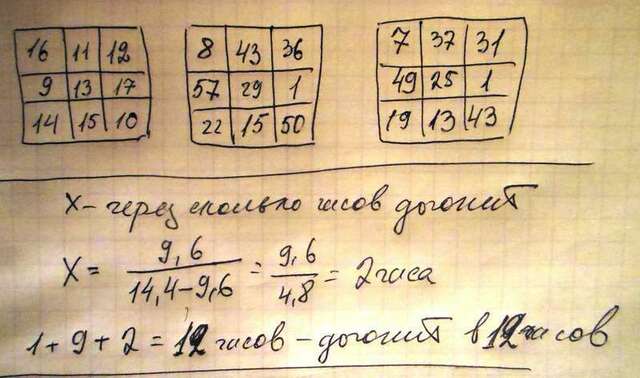 16 11 12 8 43 36 7 37 31
9 13 17 57 29 1 49 25 1
14 15 10 22 15 50 19 13 43
x - через сколько часов догонит
x = 9,6 / 14,4-9,6 = 9,6 / 4,8 = 2 часа
1 + 9 + 2 = 12 часов - догонит в 12 часов